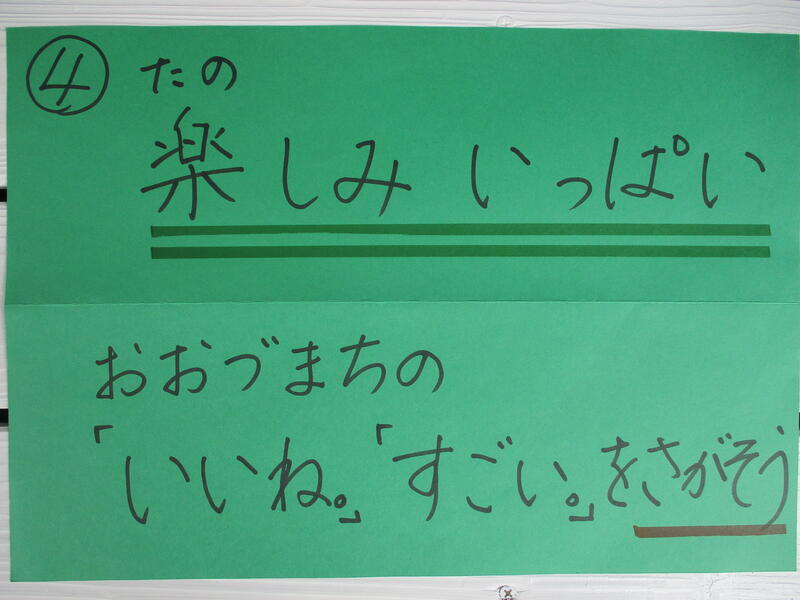 ④ たの
楽しみ いっぱい
おおづまちの
「いいね。」「すごい。」をさがそう